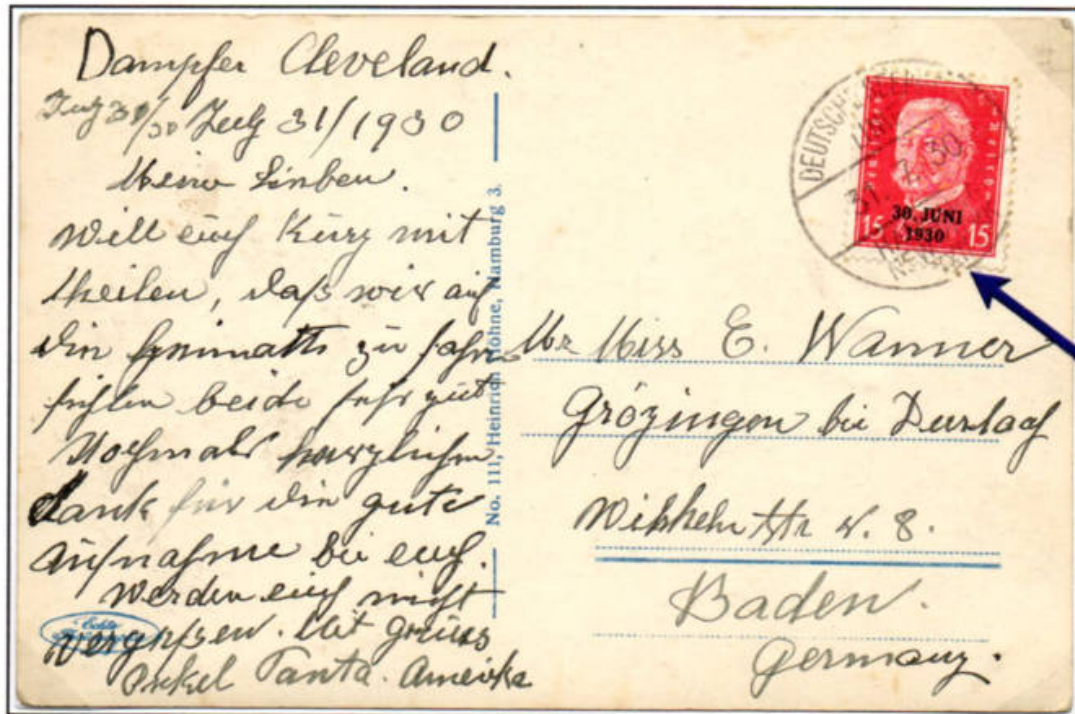 Dampfer Cleveland.
July 31/1930
Meine Lieben.
Will euch Kurz mit
theilen, daß wir auf
die heimatts zu fahr
fühlen beide sehr gut
Nochmals herzlichen
dank für die gute
Aufnahme bei euch.
Werden euch nicht
vergessen. Mit Grüss
Onkel Tanta. Amerika
No. 111, Heinrich Höhne, Hamburg 3.
DEUTSCHE
31.7.30
30. JUNI
1930
15 15
Miss E. Wanner
Grözingen bei Durlach
8.
Baden.
Germany.